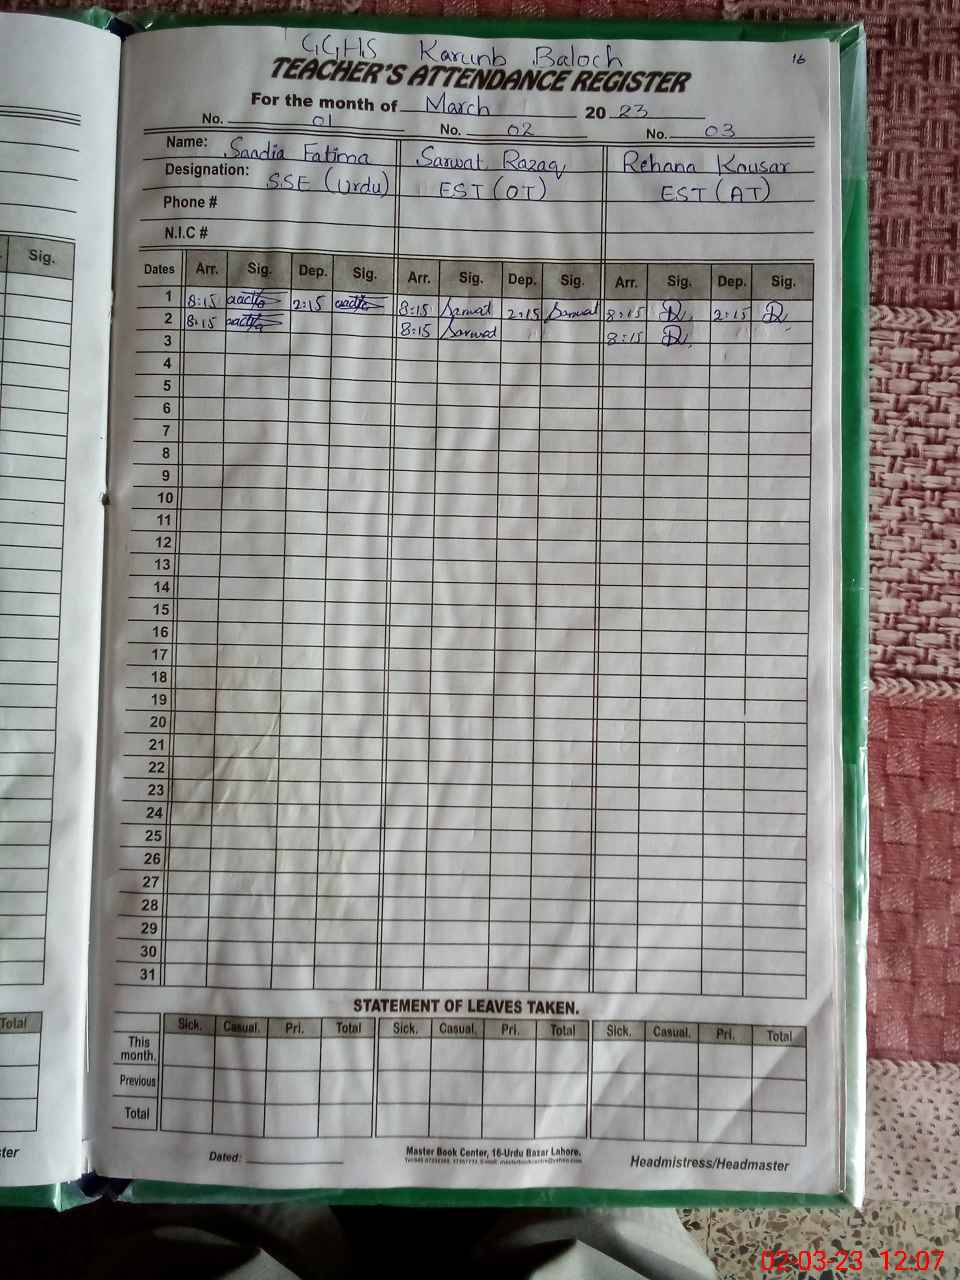 GGHS Karunb Baloch
16
TEACHER'S ATTENDANCE REGISTER
For the month of March 20 23
No. 01 No. 02 No. 03
Name: Saadia Fatima Sarwat Razaq Rehana Kousar
Designation: SSE (Urdu) EST (OT) EST (AT)
Phone #
N.I.C #
Dates Arr. Sig. Dep. Sig. Arr. Sig. Dep. Sig. Arr. Sig. Dep. Sig.
1 8:15 2:15 8:15 Sarwat 2:15 Sarwat 8:15 2:15
2 8:15 8:15 Sarwat 8:15
3
4
5
6
7
8
9
10
11
12
13
14
15
16
17
18
19
20
21
22
23
24
25
26
27
28
29
30
31
STATEMENT OF LEAVES TAKEN.
Sick. Casual. Pri. Total Sick. Casual. Pri. Total Sick. Casual. Pri. Total
This month.
Previous
Total
Dated:
Master Book Center, 16-Urdu Bazar Lahore.
Headmistress/Headmaster
Sig.
Total
ter
02-03-23 12:07